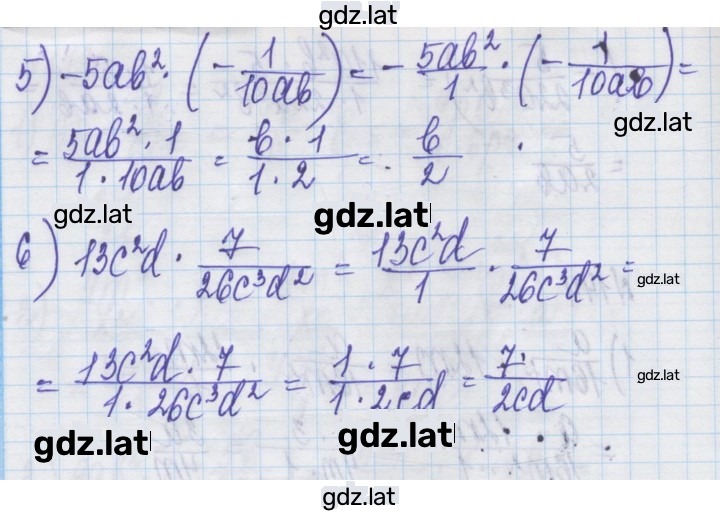 gdz.lat
5) -5ab² · (- 1/(10ab)) = - 5ab²/1 · (- 1/(10ab)) =
gdz.lat
= (5ab² · 1)/(1 · 10ab) = (b · 1)/(1 · 2) = b/2
gdz.lat gdz.lat
6) 13c²d · 7/(26c³d²) = 13c²d/1 · 7/(26c³d²) =
gdz.lat
= (13c²d · 7)/(1 · 26c³d²) = (1 · 7)/(1 · 2cd) = 7/(2cd)
gdz.lat
gdz.lat gdz.lat
gdz.lat